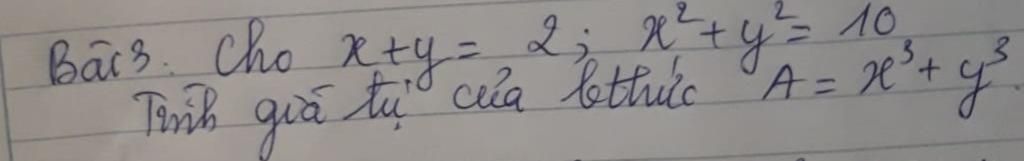 Bài 3. Cho x+y= 2; x²+y²= 10
Tính giá trị của bthức A = x³+ y³.